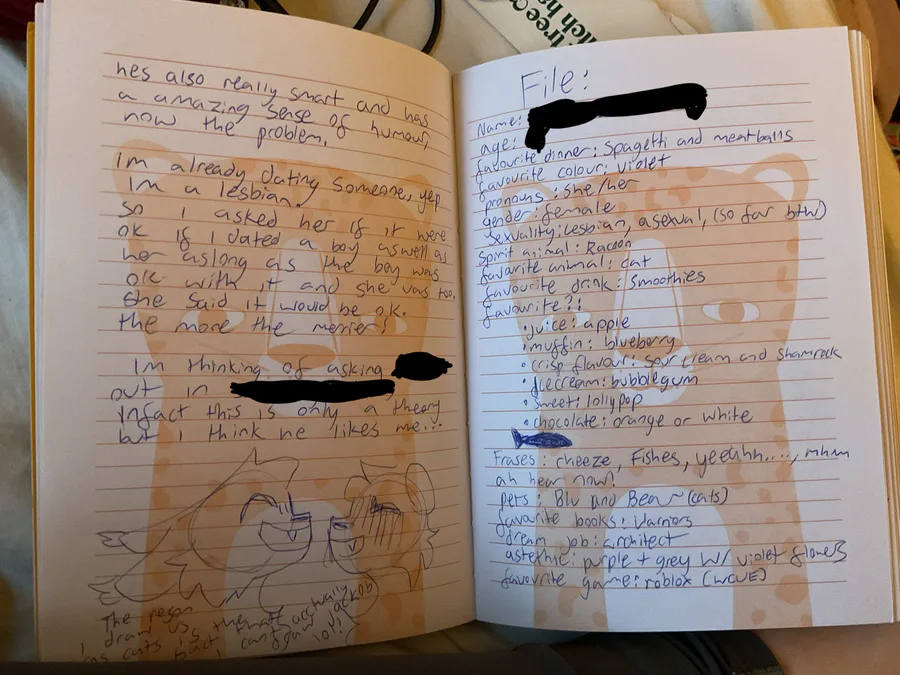 tree
hes also really smart and has
a amazing sense of humour,
now the problem.
Im already dating someone, yep
Im a lesbian.
so I asked her if it were
ok if I dated a boy aswell as
her aslong as the boy was
ok with it and she was too.
She said it would be ok.
the more the merrier!
Im thinking of asking
out in
infact this is only a theory
but i think he likes me...
The reason
I draw us
as cats is
bad I cant actually
draw
lol!
File:
Name:
age:
favourite dinner: spagetti and meatballs
favourite colour: violet
pronouns: she/her
gender: female
sexuality: lesbian, asexual, (so far btw)
spirit animal: Racoon
favorite animal: cat
favourite drink: smoothies
favourite?!
• juice: apple
• muffin: blueberry
• crisp flavour: sour cream and shamrock
• Icecream: bubblegum
• sweet: lollypop
• chocolate: orange or white
Frases: cheeze, Fishes, yeeahh...., mhm
ah hear now!
pets: Blu and Bea ~ (cats)
favourite books: Warriors
dream job: architect
astethic: purple + grey w/ violet flowers
favourite game: roblox (WCUE)